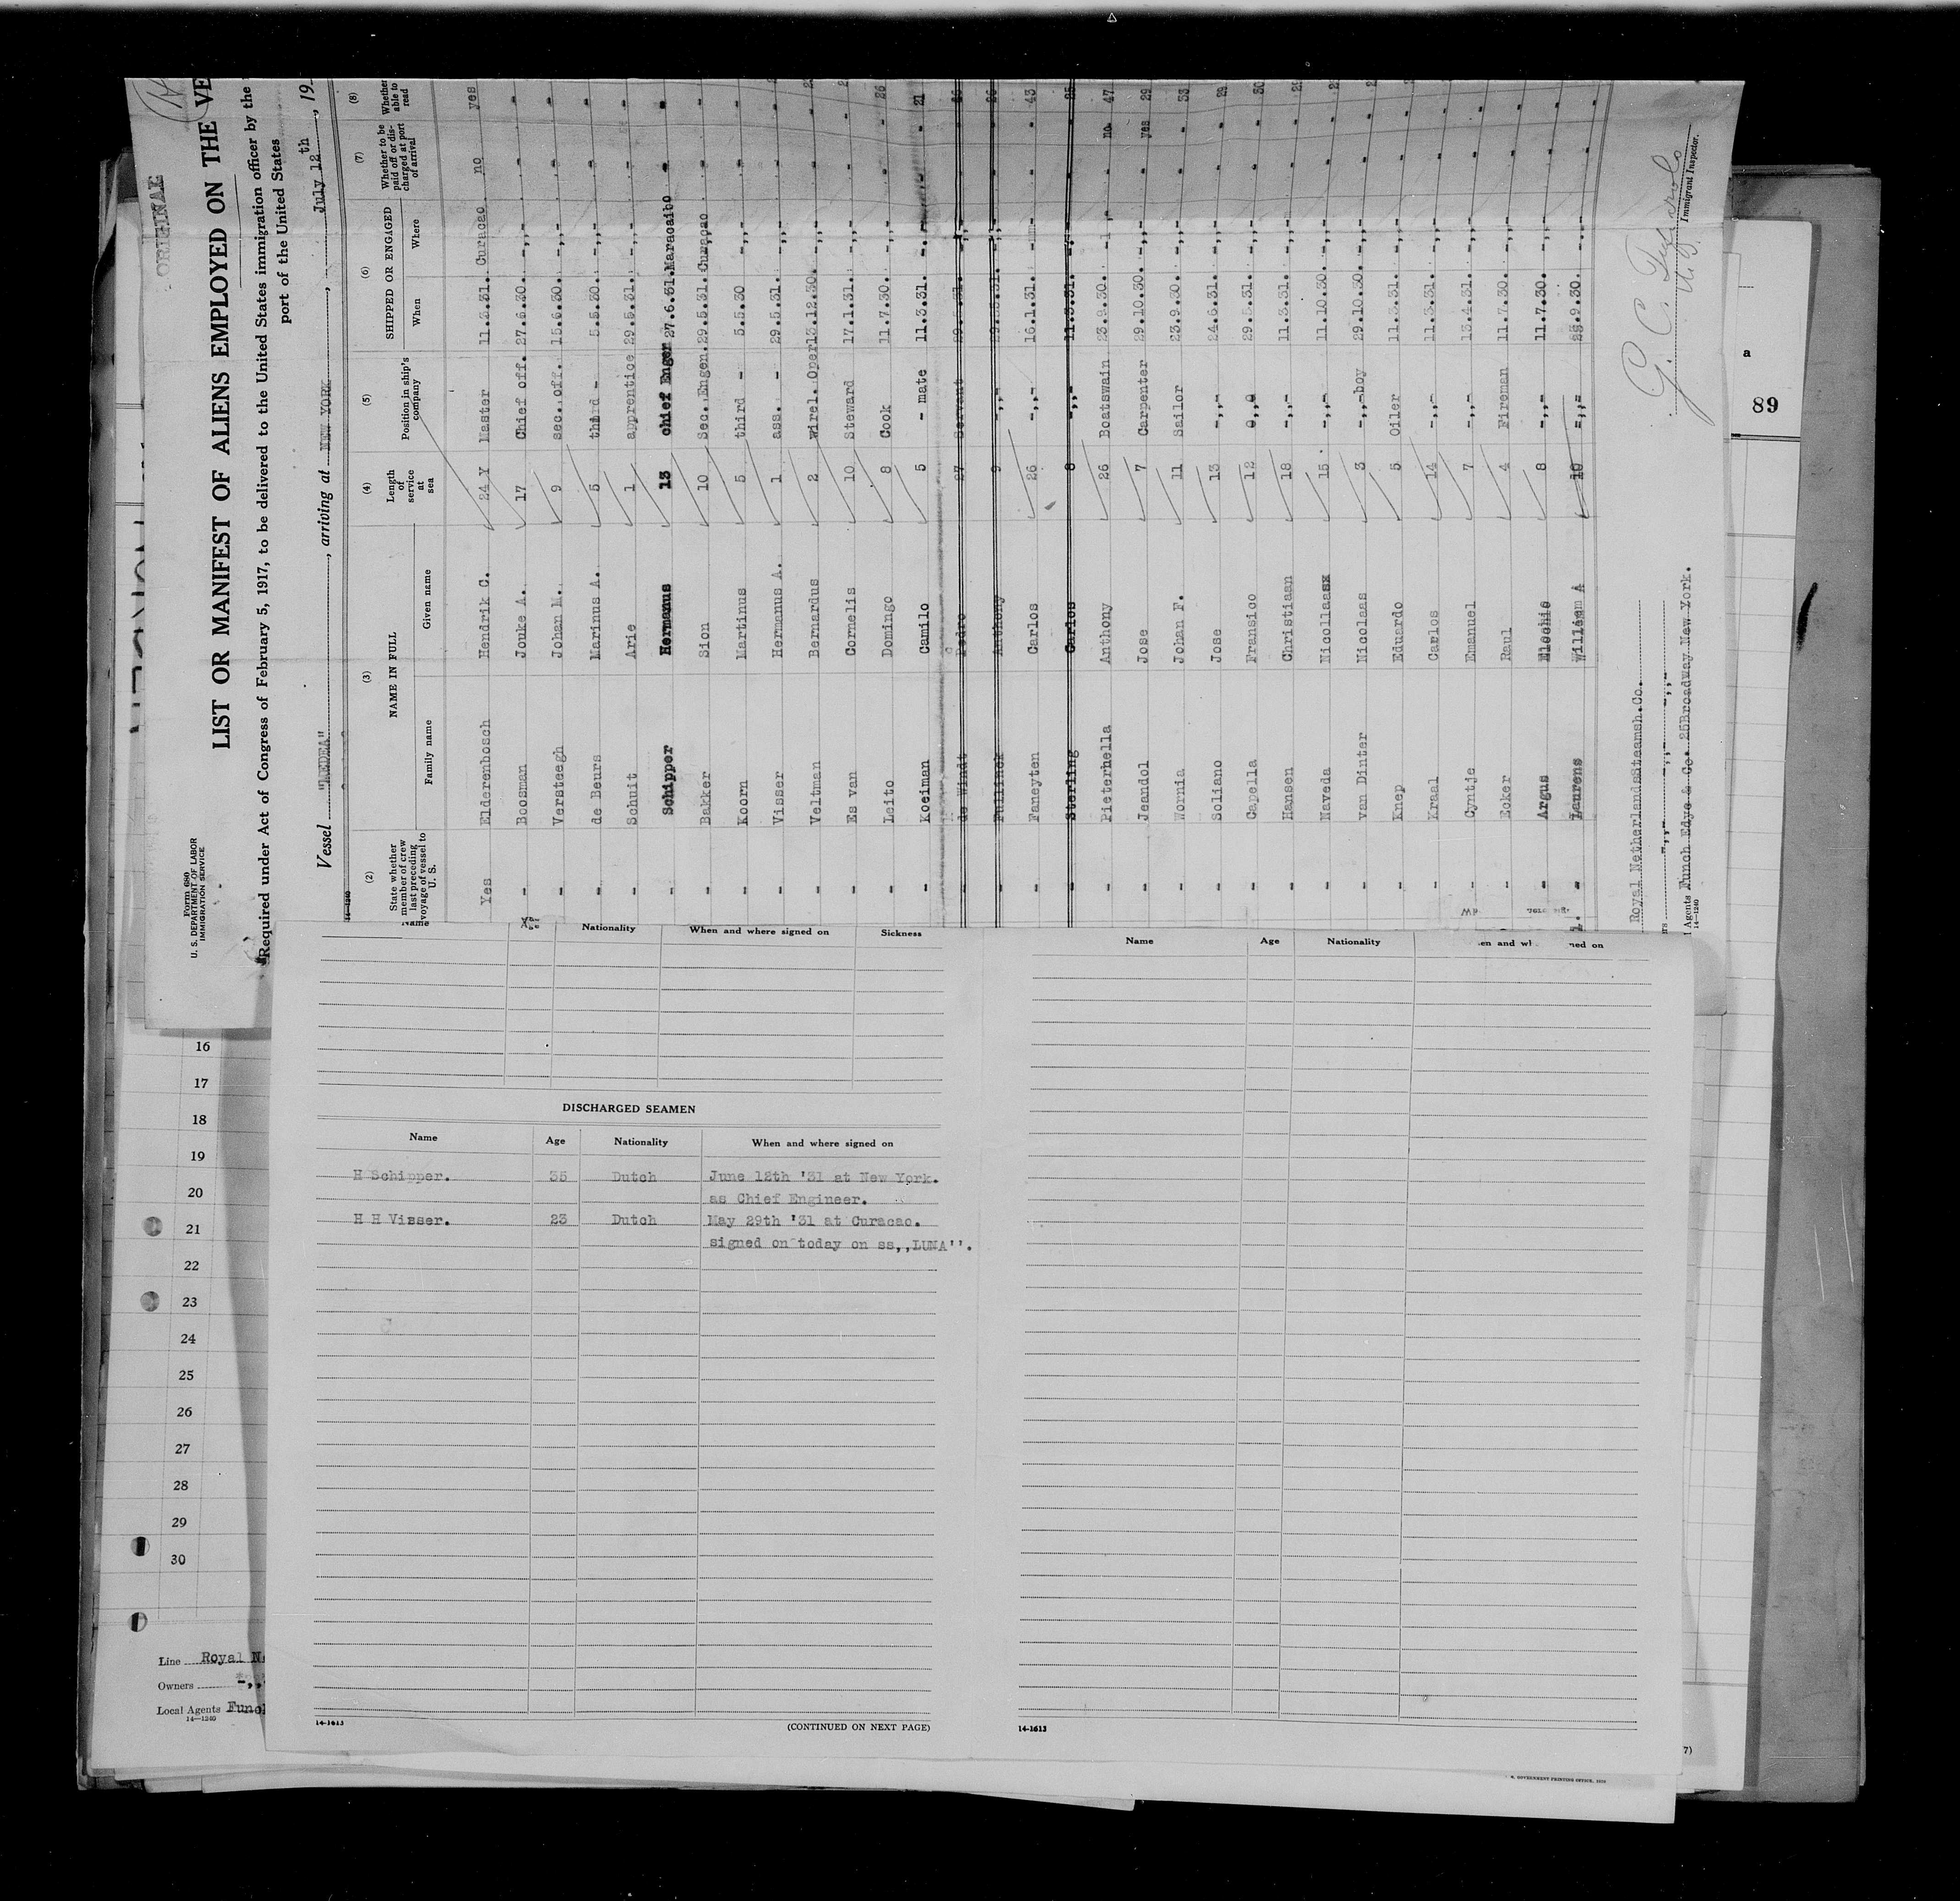 ORIGINAL
Form 680
U. S. DEPARTMENT OF LABOR
IMMIGRATION SERVICE
LIST OR MANIFEST OF ALIENS EMPLOYED ON THE VE
Required under Act of Congress of February 5, 1917, to be delivered to the United States immigration officer by the
port of the United States
Vessel "MEDEA", arriving at NEW YORK, July 12th, 19
14-1240
(2) (3) (4) (5) (6) (7) (8)
State whether member of crew last preceding voyage of vessel to U. S. NAME IN FULL Family name Given name Length of service at sea Position in ship's company SHIPPED OR ENGAGED When Where Whether to be paid off or discharged at port of arrival Whether able to read
Yes Elderenbosch Hendrik C. 24 Y Master 11.3.31. Curacao no yes
- Boosman Jouke A. 17 Chief off. 27.6.30. -,,- - -
- Versteegh Johan M. 9 sec. off. 15.6.30. -,,- - -
- de Beurs Marinus A. 5 third - 5.5.30. -,,- - -
- Schuit Arie 1 apprentice 29.5.31. -,,- - -
- Schipper Hermanus 13 chief Enger 27.6.31. Maracaibo - -
- Bakker Sion 10 Sec. Engen. 29.5.31. Curacao - -
- Koorn Martinus 5 third - 5.5.30 -,,- - -
- Visser Hermanus A. 1 ass. - 29.5.31. -,,- - -
- Veltman Bernardus 2 Wirel. Oper 13.12.30. -,,- - -
- Es van Cornelis 10 Steward 17.1.31. -,,- - -
- Leito Domingo 8 Cook 11.7.30. -,,- - - 26
- Koeiman Camilo 5 - mate 11.3.31. -,,- - - 21
- de Windt Pedro 27 Servant 29.5.31. -,,- - -
- Pullinck Anthony 9 -,,- 29.5.31. -,,- - - 26
- Faneyten Carlos 26 -,,- 16.1.31. - - 43
- Sterling Carlos 8 -,,- 11.3.31. - - 25
- Pieterhella Anthony 26 Boatswain 23.9.30. - no 47
- Jeandol Jose 7 Carpenter 29.10.30. -,,- - yes 29
- Wornia Johan F. 11 Sailor 23.9.30. -,,- - - 33
- Soliano Jose 13 -,,- 24.6.31. -,,- - - 29
- Capella Fransico 12 0,,0 29.5.31. -,,- - - 30
- Hansen Christiaan 18 -,,- 11.3.31. -,,- - -
- Naveda Nicollaasx 15 -,,- 11.10.30. -,,- - -
- van Dinter Nicolaas 3 -,,-boy 29.10.30. -,,- - -
- Knep Eduardo 5 Oiler 11.3.31. -,,- - -
- Kraal Carlos 14 -,,- 11.3.31. -,,- - -
- Cyntje Emanuel 7 -,,- 13.4.31. -,,- - -
- Ecker Raul 4 Fireman 11.7.30. -,,- - -
- Argus Elochie 8 -,,- 11.7.30. -,,- - -
- Laurens Willem A 10 -,,- 23.9.30. -,,- - -
Royal NetherlandsSteamsh.Co.
-,,- -,,- -,,-
l Agents Funch Edye & Co. 25Broadway New York.
14-1240
Immigrant Inspector.
a
89
Name Age Nationality When and where signed on Sickness
Name Age Nationality en and wh ned on
DISCHARGED SEAMEN
Name Age Nationality When and where signed on
H Schipper. 35 Dutch June 12th '31 at New York.
as Chief Engineer.
H H Visser. 23 Dutch May 29th '31 at Curacao.
signed on today on ss,,LUNA''.
14-1613
(CONTINUED ON NEXT PAGE)
14-1613
16
17
18
19
20
21
22
23
24
25
26
27
28
29
30
Line Royal N
Owners -,,
Local Agents Funch
14-1240
7)
GOVERNMENT PRINTING OFFICE